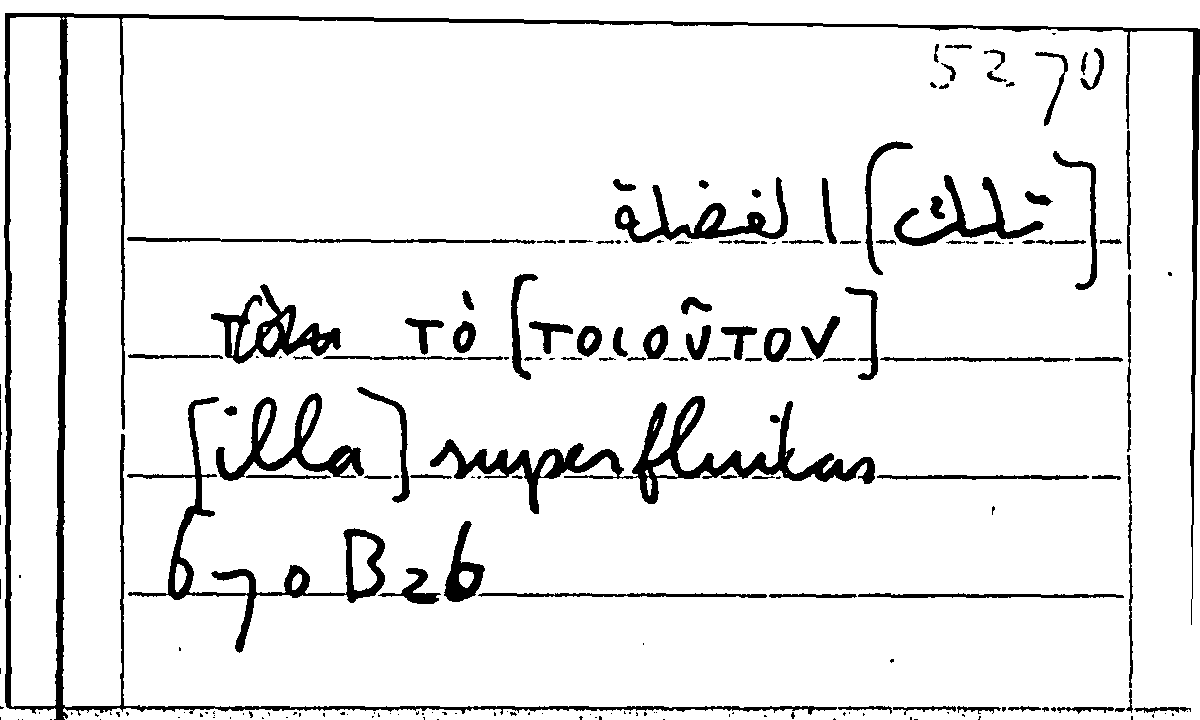 5270
[تلك] الفضلة
τὸ [τοιοῦτον]
[illa] superfluitas
670 B 26